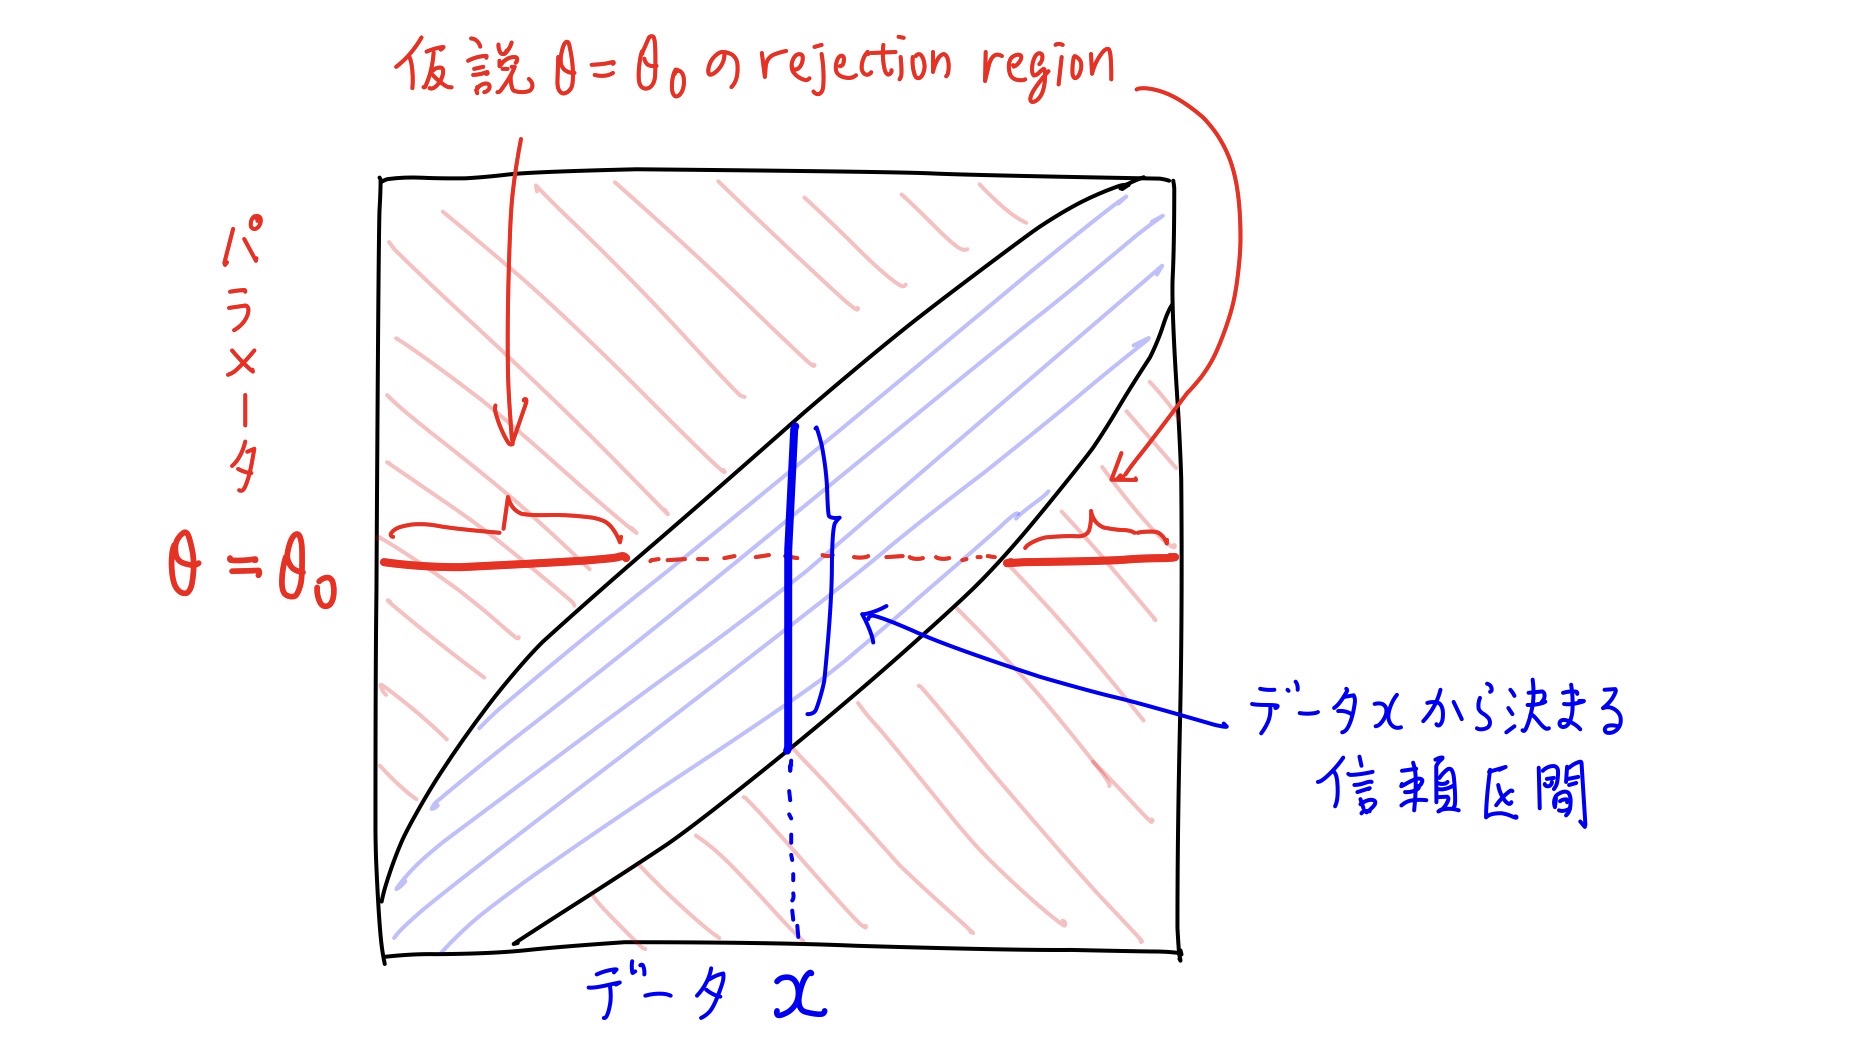 仮説 θ = θ₀ の rejection region
パラメータ
θ = θ₀
データxから決まる
信頼区間
データ x